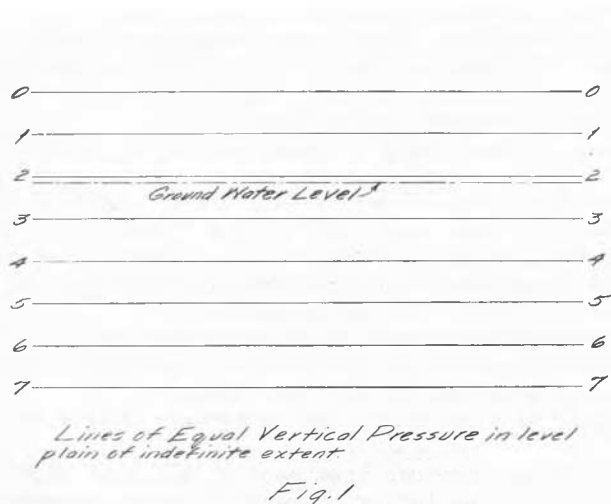 0 0
1 1
2 2
Ground Water Level
3 3
4 4
5 5
6 6
7 7
Lines of Equal Vertical Pressure in level
plain of indefinite extent.
Fig. 1